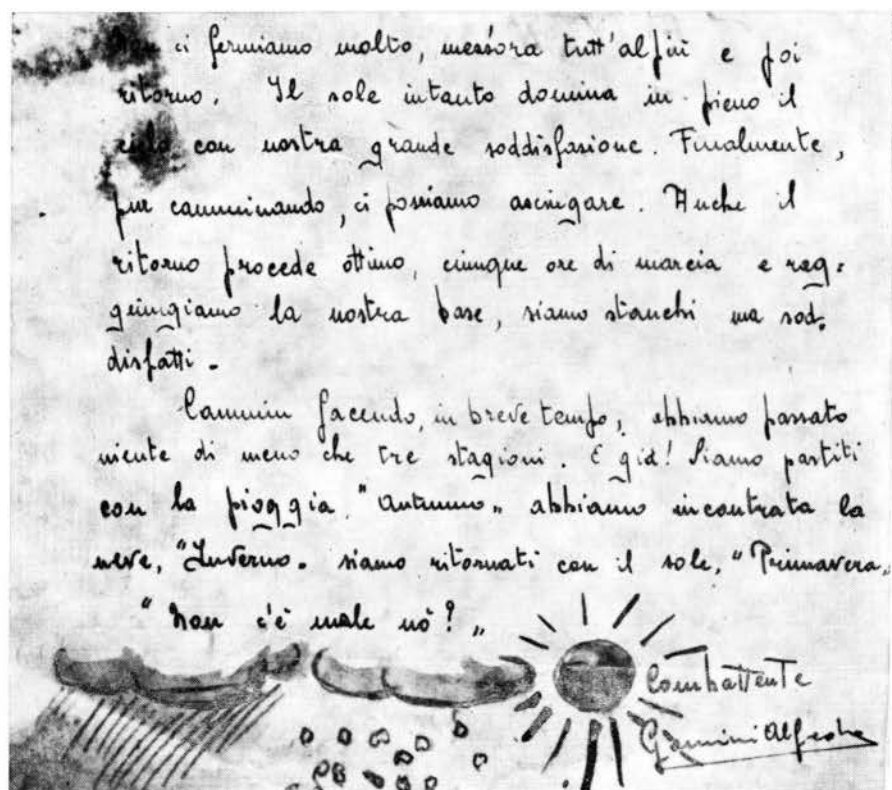 Non ci fermiamo molto, mezz'ora tutt'al più e poi
ritorno. Il sole intanto domina in pieno il
cielo con nostra grande soddisfazione. Finalmente,
pur camminando, ci possiamo asciugare. Anche il
ritorno procede ottimo, cinque ore di marcia e rag=
giungiamo la nostra base, siamo stanchi ma sod=
disfatti.
Cammin facendo, in breve tempo, abbiamo passato
niente di meno che tre stagioni. E già! Siamo partiti
con la pioggia "Autunno„ abbiamo incontrata la
neve, "Inverno„ siamo ritornati con il sole, "Primavera„
"Non c'è male nò?„
Combattente
Alfredo